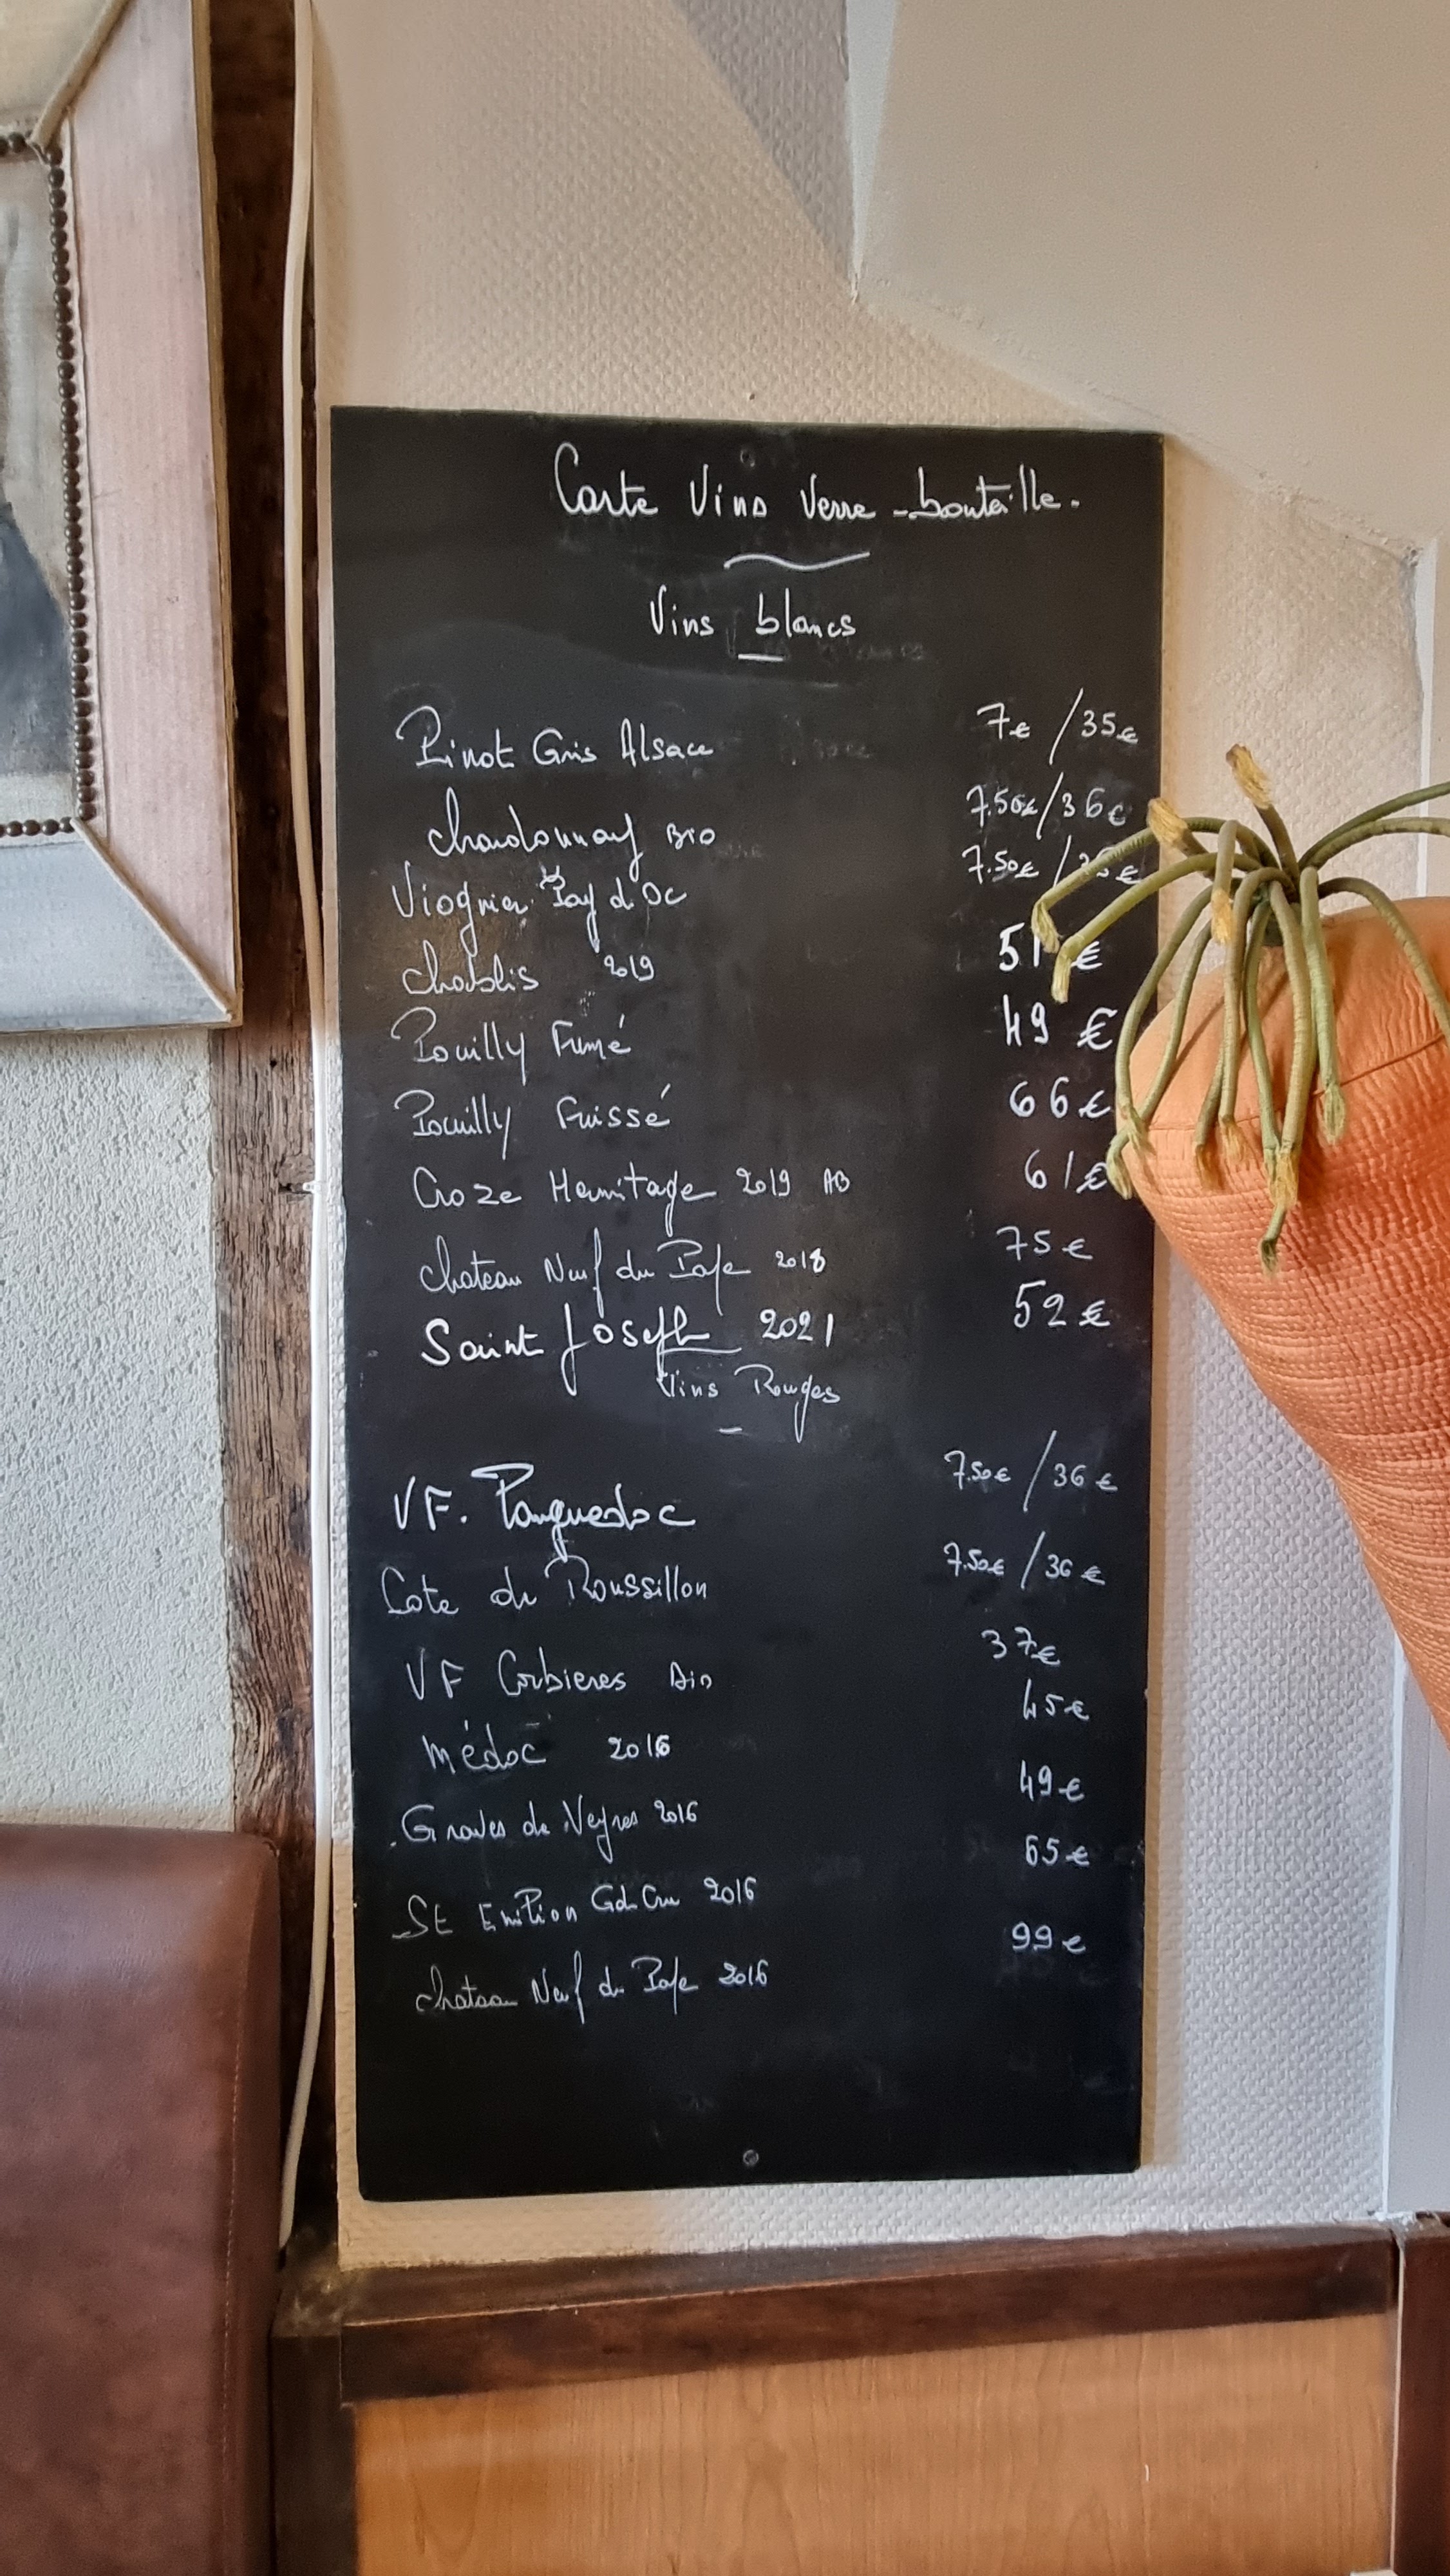 Carte Vins Verre - bouteille.
Vins blancs
Pinot Gris Alsace 7€ / 35€
Chardonnay BIO 7.50€ / 36€
Viognier Pay d'Oc 7.50€ /
Chablis 2019 51 €
Pouilly Fumé 49 €
Pouilly Fuissé 66€
Croze Hermitage 2019 AB 61€
Chateau Neuf du Pape 2018 75€
Saint Joseph 2021 52€
Vins Rouges
VF. Languedoc 7.50€ / 36€
Cote du Roussillon 7.50€ / 36€
VF Corbieres Bio 37€
Médoc 2016 45€
Graves de Veyres 2016 49€
St Emilion Gd Cru 2016 65€
Chateau Neuf du Pape 2016 99€